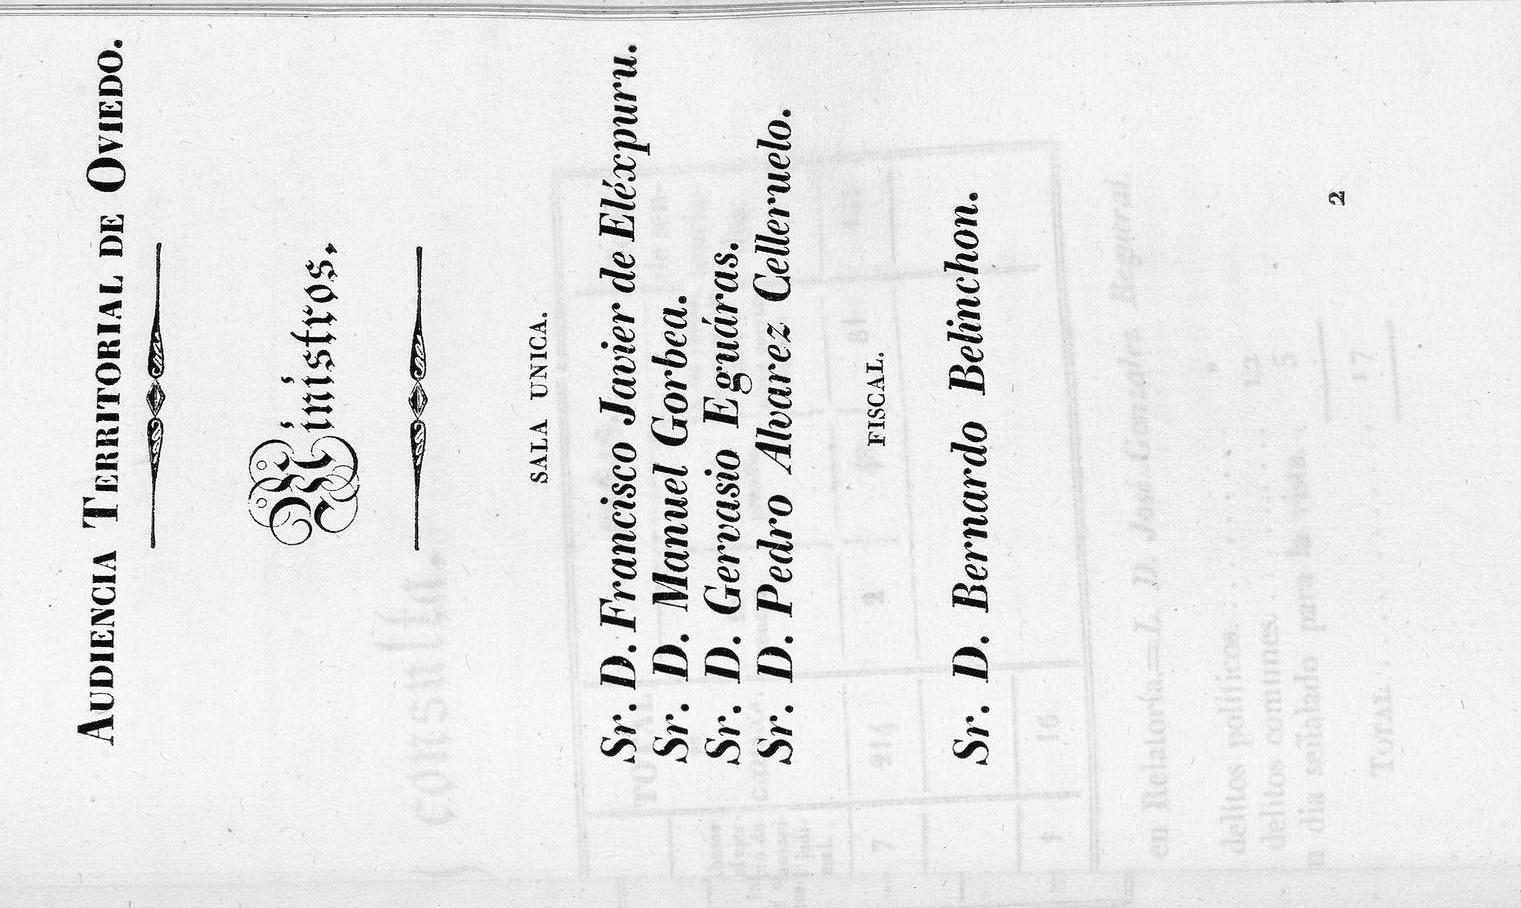 AUDIENCIA TERRITORIAL DE OVIEDO.
Ministros.
SALA UNICA.
Sr. D. Francisco Javier de Eléxpuru.
Sr. D. Manuel Gorbea.
Sr. D. Gervasio Eguáras.
Sr. D. Pedro Alvarez Celleruelo.
FISCAL.
Sr. D. Bernardo Belinchon.
2